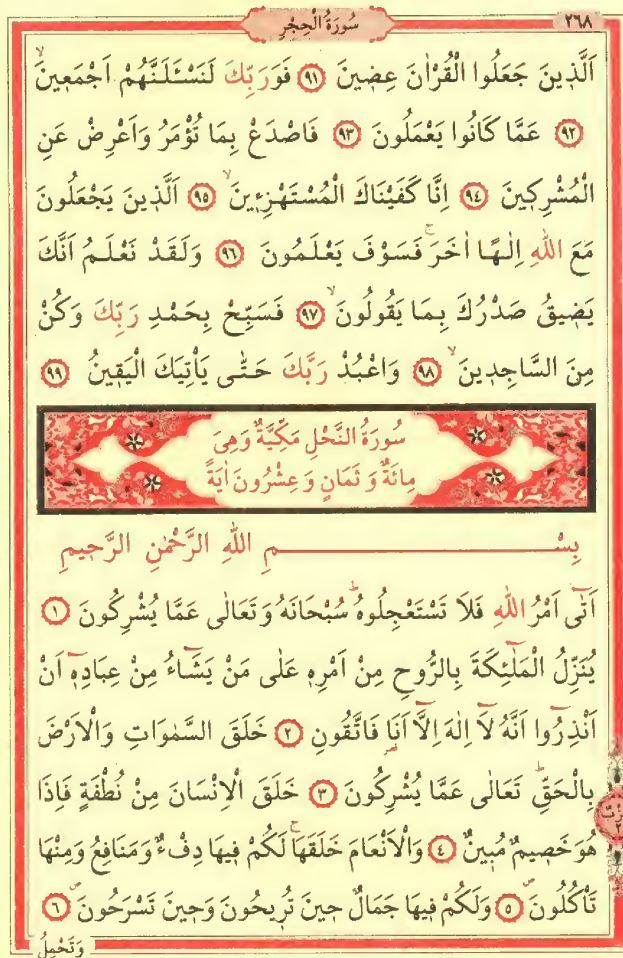 سُورَةُ الْحِجْرِ
٢٦٨
اَلَّذ۪ينَ جَعَلُوا الْقُرْاٰنَ عِض۪ينَ ﴿٩١﴾ فَوَرَبِّكَ لَنَسْـَٔلَنَّهُمْ اَجْمَع۪ينَۙ
﴿٩٢﴾ عَمَّا كَانُوا يَعْمَلُونَ ﴿٩٣﴾ فَاصْدَعْ بِمَا تُؤْمَرُ وَاَعْرِضْ عَنِ
الْمُشْرِك۪ينَ ﴿٩٤﴾ اِنَّا كَفَيْنَاكَ الْمُسْتَهْزِء۪ينَۙ ﴿٩٥﴾ اَلَّذ۪ينَ يَجْعَلُونَ
مَعَ اللّٰهِ اِلٰهًا اٰخَرَۚ فَسَوْفَ يَعْلَمُونَ ﴿٩٦﴾ وَلَقَدْ نَعْلَمُ اَنَّكَ
يَض۪يقُ صَدْرُكَ بِمَا يَقُولُونَۙ ﴿٩٧﴾ فَسَبِّحْ بِحَمْدِ رَبِّكَ وَكُنْ
مِنَ السَّاجِد۪ينَۙ ﴿٩٨﴾ وَاعْبُدْ رَبَّكَ حَتّٰى يَأْتِيَكَ الْيَق۪ينُ ﴿٩٩﴾
سُورَةُ النَّحْلِ مَكِّيَّةٌ وَهِىَ
مِائَةٌ وَ ثَمَانٍ وَ عِشْرُونَ اٰيَةً
بِسْمِ اللّٰهِ الرَّحْمٰنِ الرَّح۪يمِ
اَتٰٓى اَمْرُ اللّٰهِ فَلَا تَسْتَعْجِلُوهُۜ سُبْحَانَهُ وَتَعَالٰى عَمَّا يُشْرِكُونَ ﴿١﴾
يُنَزِّلُ الْمَلٰٓئِكَةَ بِالرُّوحِ مِنْ اَمْرِه۪ عَلٰى مَنْ يَشَٓاءُ مِنْ عِبَادِه۪ٓ اَنْ
اَنْذِرُٓوا اَنَّهُ لَٓا اِلٰهَ اِلَّٓا اَنَا۬ فَاتَّقُونِ ﴿٢﴾ خَلَقَ السَّمٰوَاتِ وَالْاَرْضَ
بِالْحَقِّۜ تَعَالٰى عَمَّا يُشْرِكُونَ ﴿٣﴾ خَلَقَ الْاِنْسَانَ مِنْ نُطْفَةٍ فَاِذَا
هُوَ خَص۪يمٌ مُب۪ينٌ ﴿٤﴾ وَالْاَنْعَامَ خَلَقَهَاۚ لَكُمْ ف۪يهَا دِفْءٌ وَمَنَافِعُ وَمِنْهَا
تَأْكُلُونَۖ ﴿٥﴾ وَلَكُمْ ف۪يهَا جَمَالٌ ح۪ينَ تُر۪يحُونَ وَح۪ينَ تَسْرَحُونَۖ ﴿٦﴾
وَتَحْمِلُ